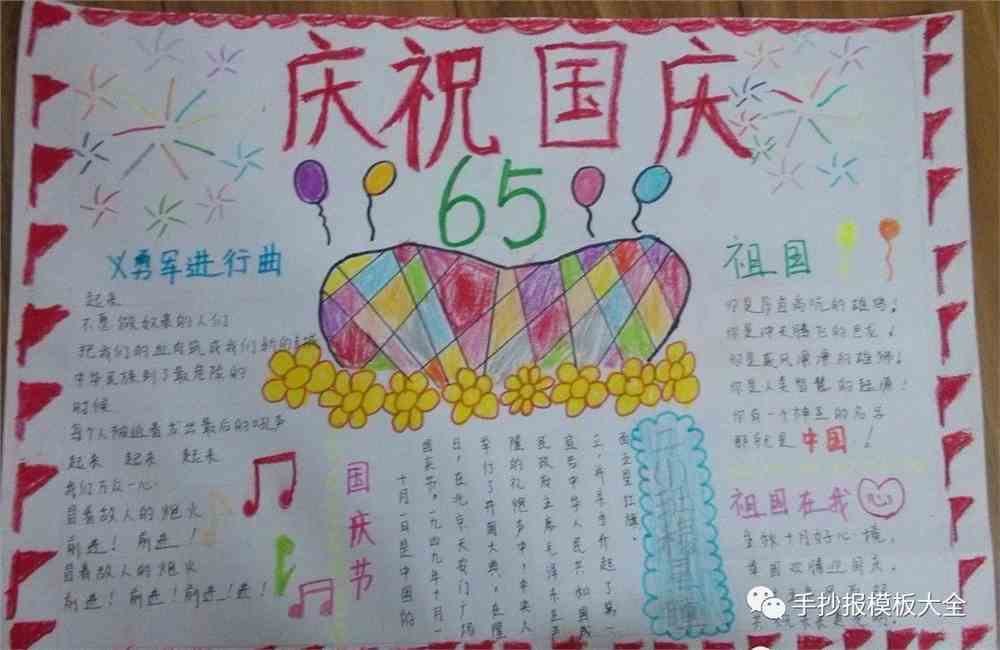 庆祝国庆
65
义勇军进行曲
起来
不愿做奴隶的人们
把我们的血肉筑成我们新的长城
中华民族到了最危险的
时候
每个人被迫着发出最后的吼声
起来 起来 起来
我们万众一心
冒着敌人的炮火
前进! 前进!
冒着敌人的炮火
前进! 前进! 前进! 进!
国庆节
十月一日是中国的
国庆节。一九四九年十月一
日,在北京天安门广场
举行了开国大典。在隆
隆的礼炮声中,中央人
民政府主席毛泽东
宣告中华人民共和国成
立,并亲手升起了第一
面五星红旗。
祖国
你是昂首高吭的雄鸡!
你是冲天腾飞的巨龙!
你是威风凛凛的雄狮!
你是人类智慧的起源!
你有一个神圣的名字
那就是中国!
祖国在我
金秋十月好心境,
手抄报模板大全